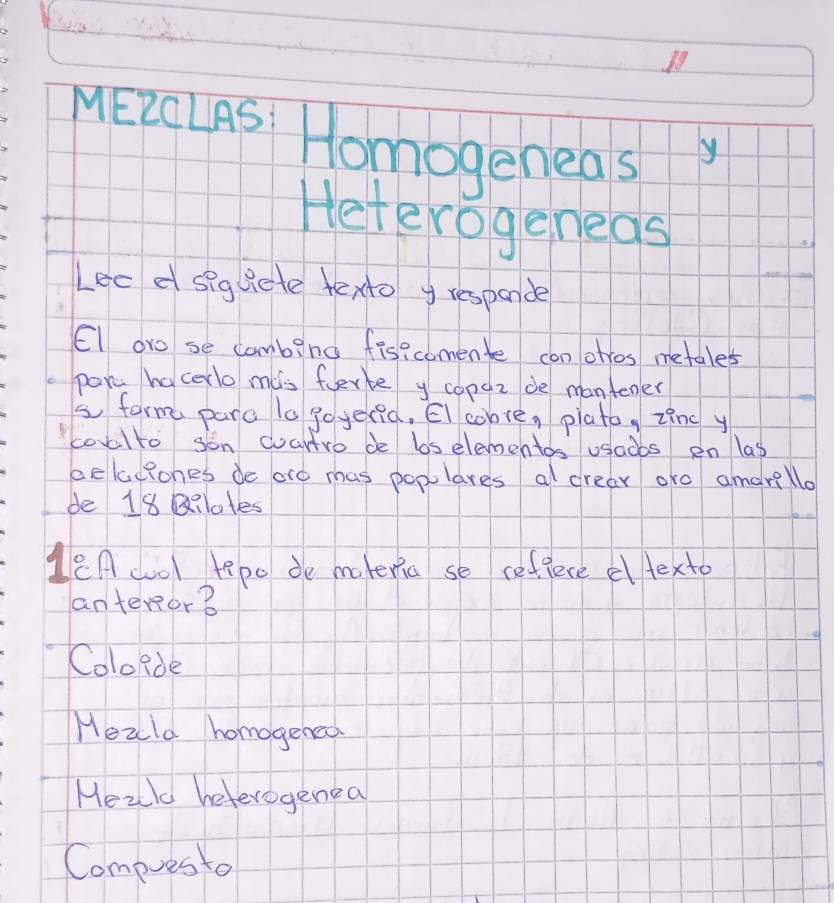 MEZCLAS: Homogeneas y
Heterogeneas
Lee el siguiete texto y responde
El oro se combina fisicamente con otros metales
para hacerlo más fuerte y capaz de mantener
su forma para la joyeria. El cobre, plata, zinc y
covalto son cuartro de los elementos usados en las
aelaciones de oro mas populares al crear oro amarillo
de 18 Qilates
1 ¿A cual tipo de materia se refiere el texto
anterior?
Coloide
Mezcla homogenea
Mezcla heterogenea
Compuesto